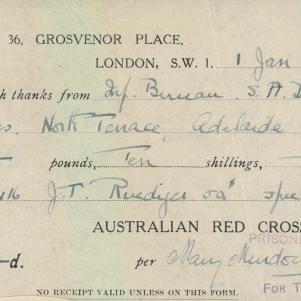 36, GROSVENOR PLACE,
LONDON, S.W. 1. 1 Jan
h thanks from Inf. Bureau. S.A.D
s. North Terrace, Adelaide
pounds, Ten shillings,
J.T. Ruediger 50th
AUSTRALIAN RED CROSS
PRISONE
-d. per Mary Murdoc
FOR T
NO RECEIPT VALID UNLESS ON THIS FORM.